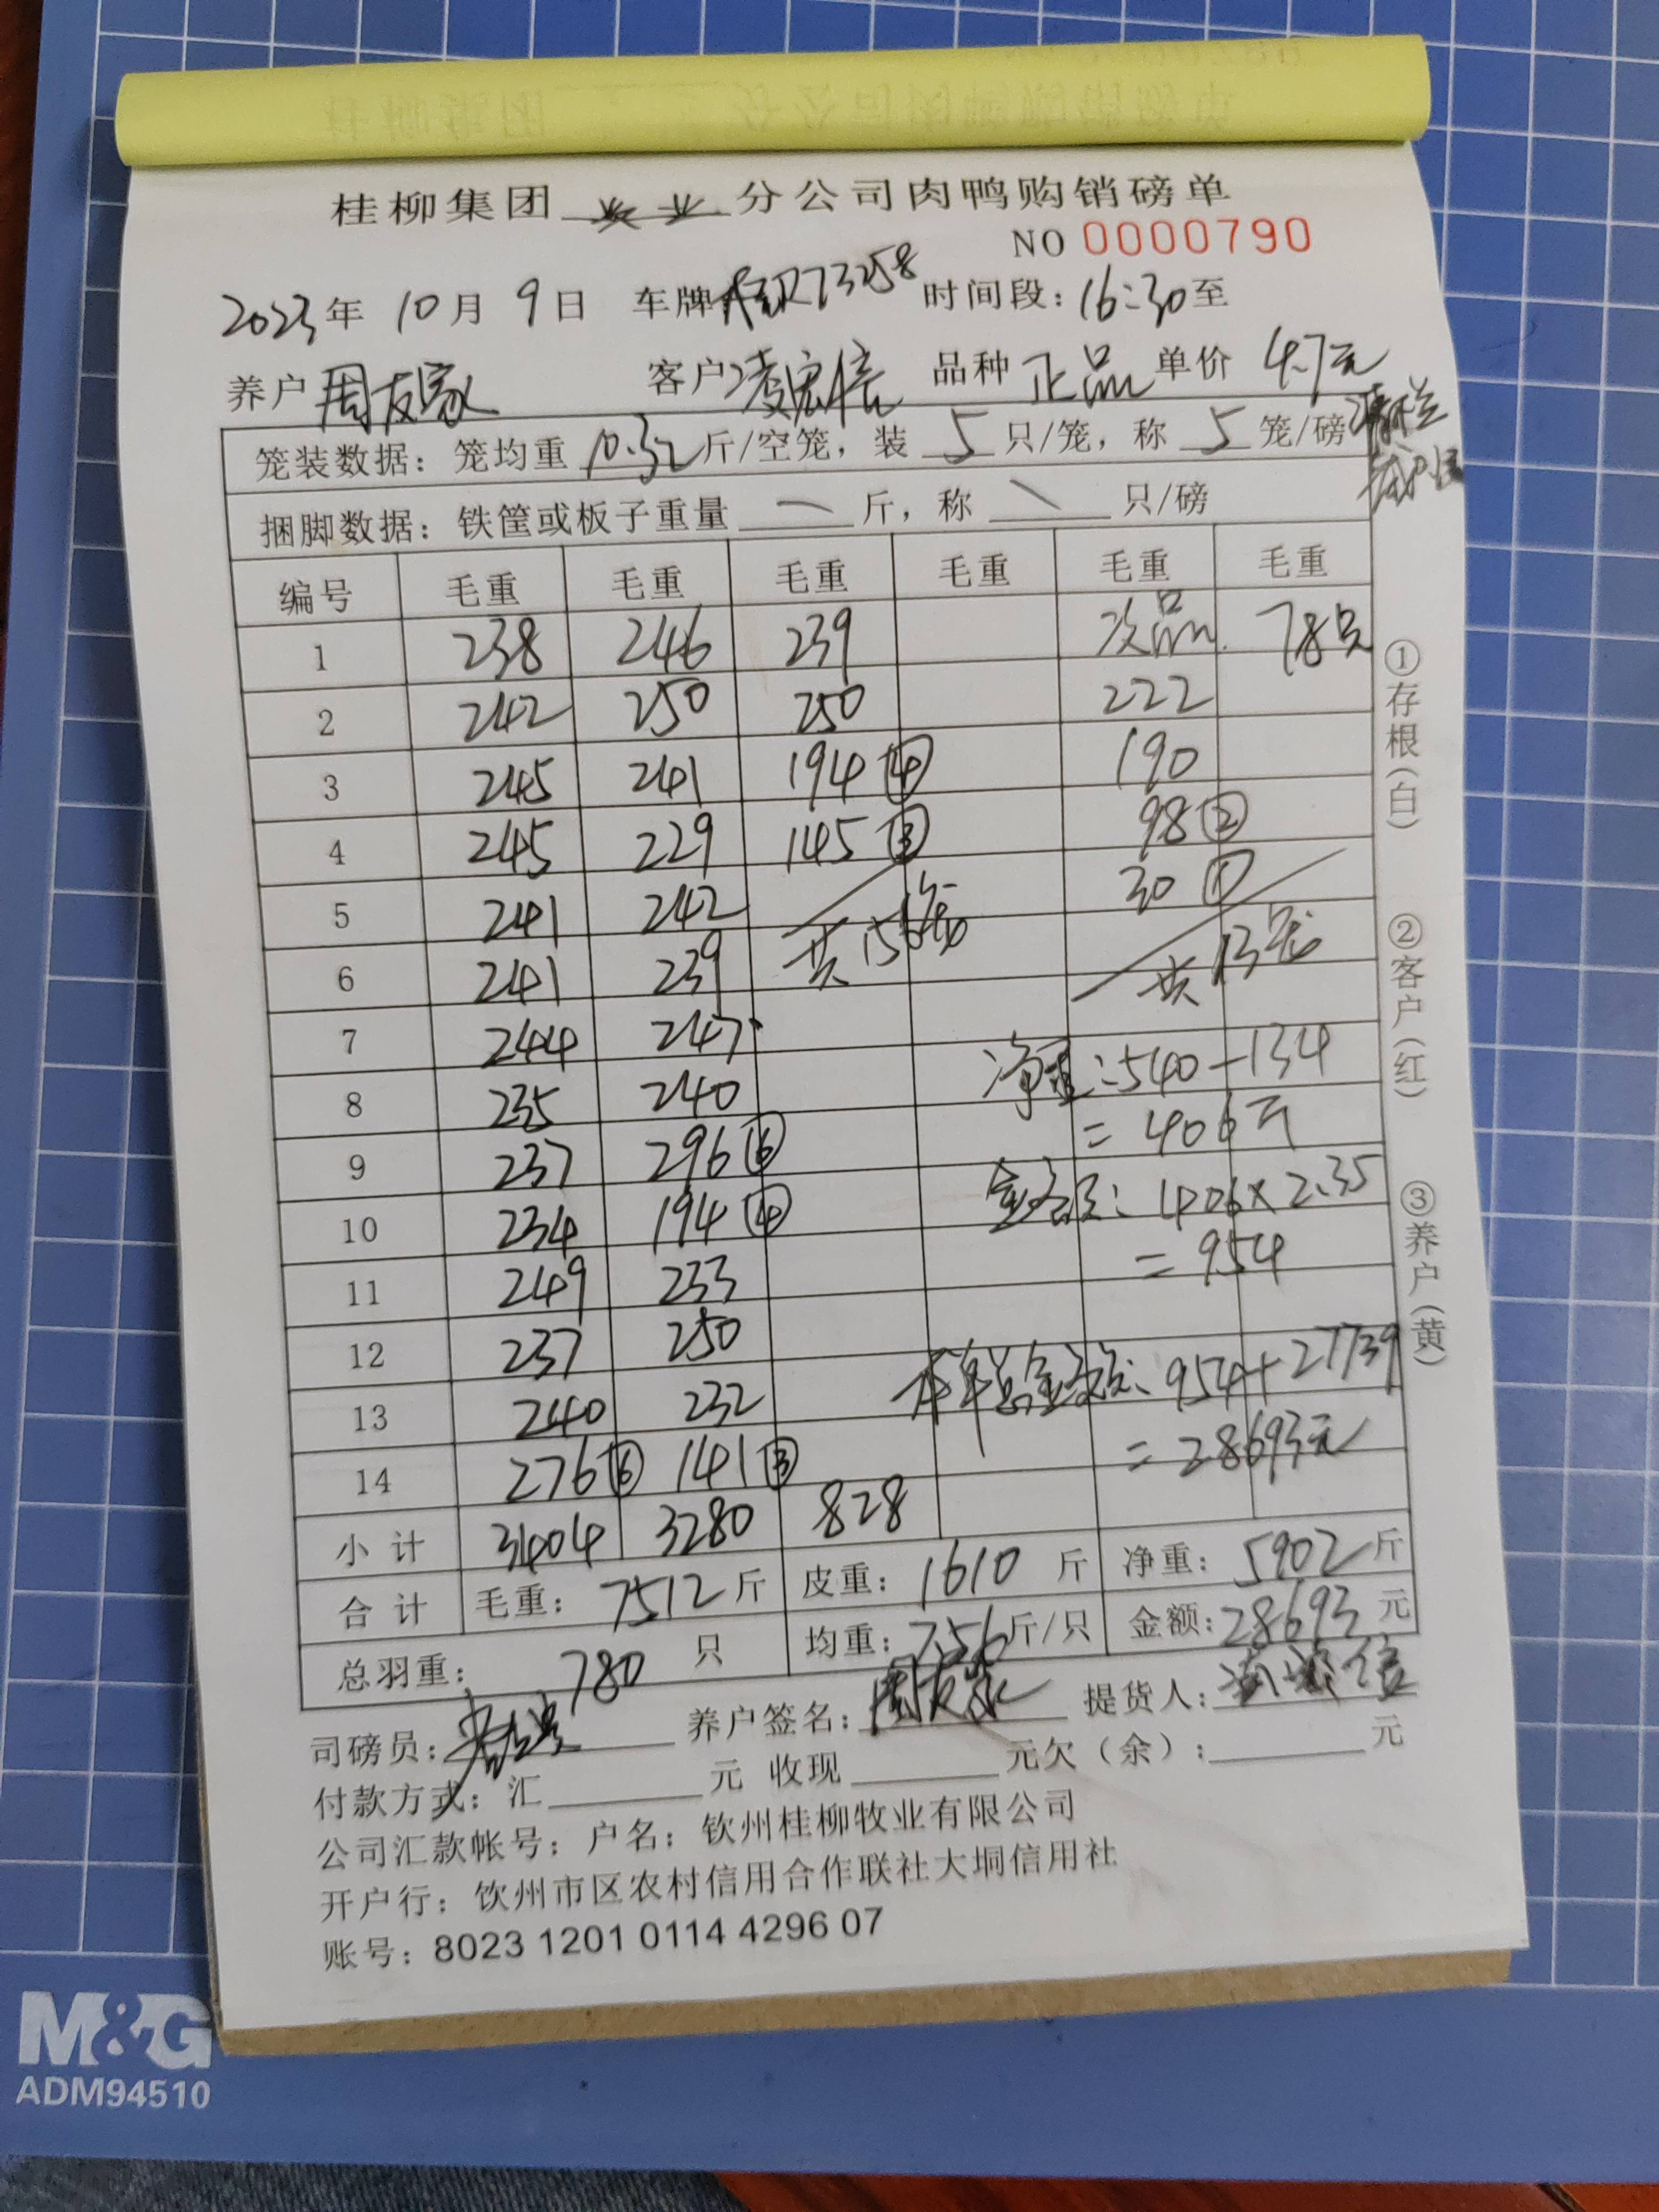 桂柳集团 兴业 分公司肉鸭购销磅单
NO 0000790
2023年 10月 9日 车牌 73258 时间段：16:30至
养户 周友家 客户 凌宏信 品种 正品 单价 4.7元
笼装数据：笼均重 10.32 斤/空笼，装 5 只/笼，称 5 笼/磅
捆脚数据：铁筐或板子重量 — 斤，称 \ 只/磅
编号 毛重 毛重 毛重 毛重 毛重 毛重
1 238 246 239 次品 78只
2 242 250 250 222
3 245 241 194④ 190
4 245 229 145③ 98②
5 241 242 30①
6 241 239 共156笼 共13笼
7 244 247
净重：540-134
8 235 240
=406斤
9 237 296⑥
金额：406×2.35
10 234 194④
=954
11 249 233
12 237 250
本单总金额：954+27739
13 240 232
=28693元
14 276⑥ 141③
小计 3404 3280 828
合计 毛重：7512斤 皮重：1610斤 净重：5902斤
总羽重：780 只 均重：7.56斤/只 金额：28693元
司磅员： 养户签名：周友家 提货人：凌宏信
付款方式：汇 元 收现 元欠（余）： 元
公司汇款帐号：户名：钦州桂柳牧业有限公司
开户行：钦州市区农村信用合作联社大垌信用社
账号：8023 1201 0114 4296 07
①存根（白） ②客户（红） ③养户（黄）
M&G
ADM94510